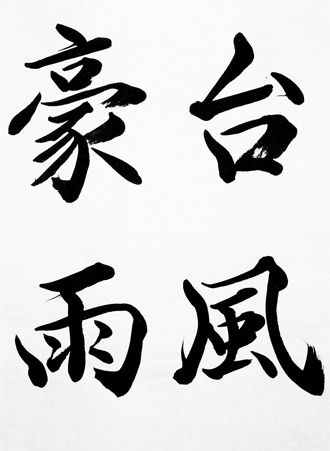 台風
豪雨